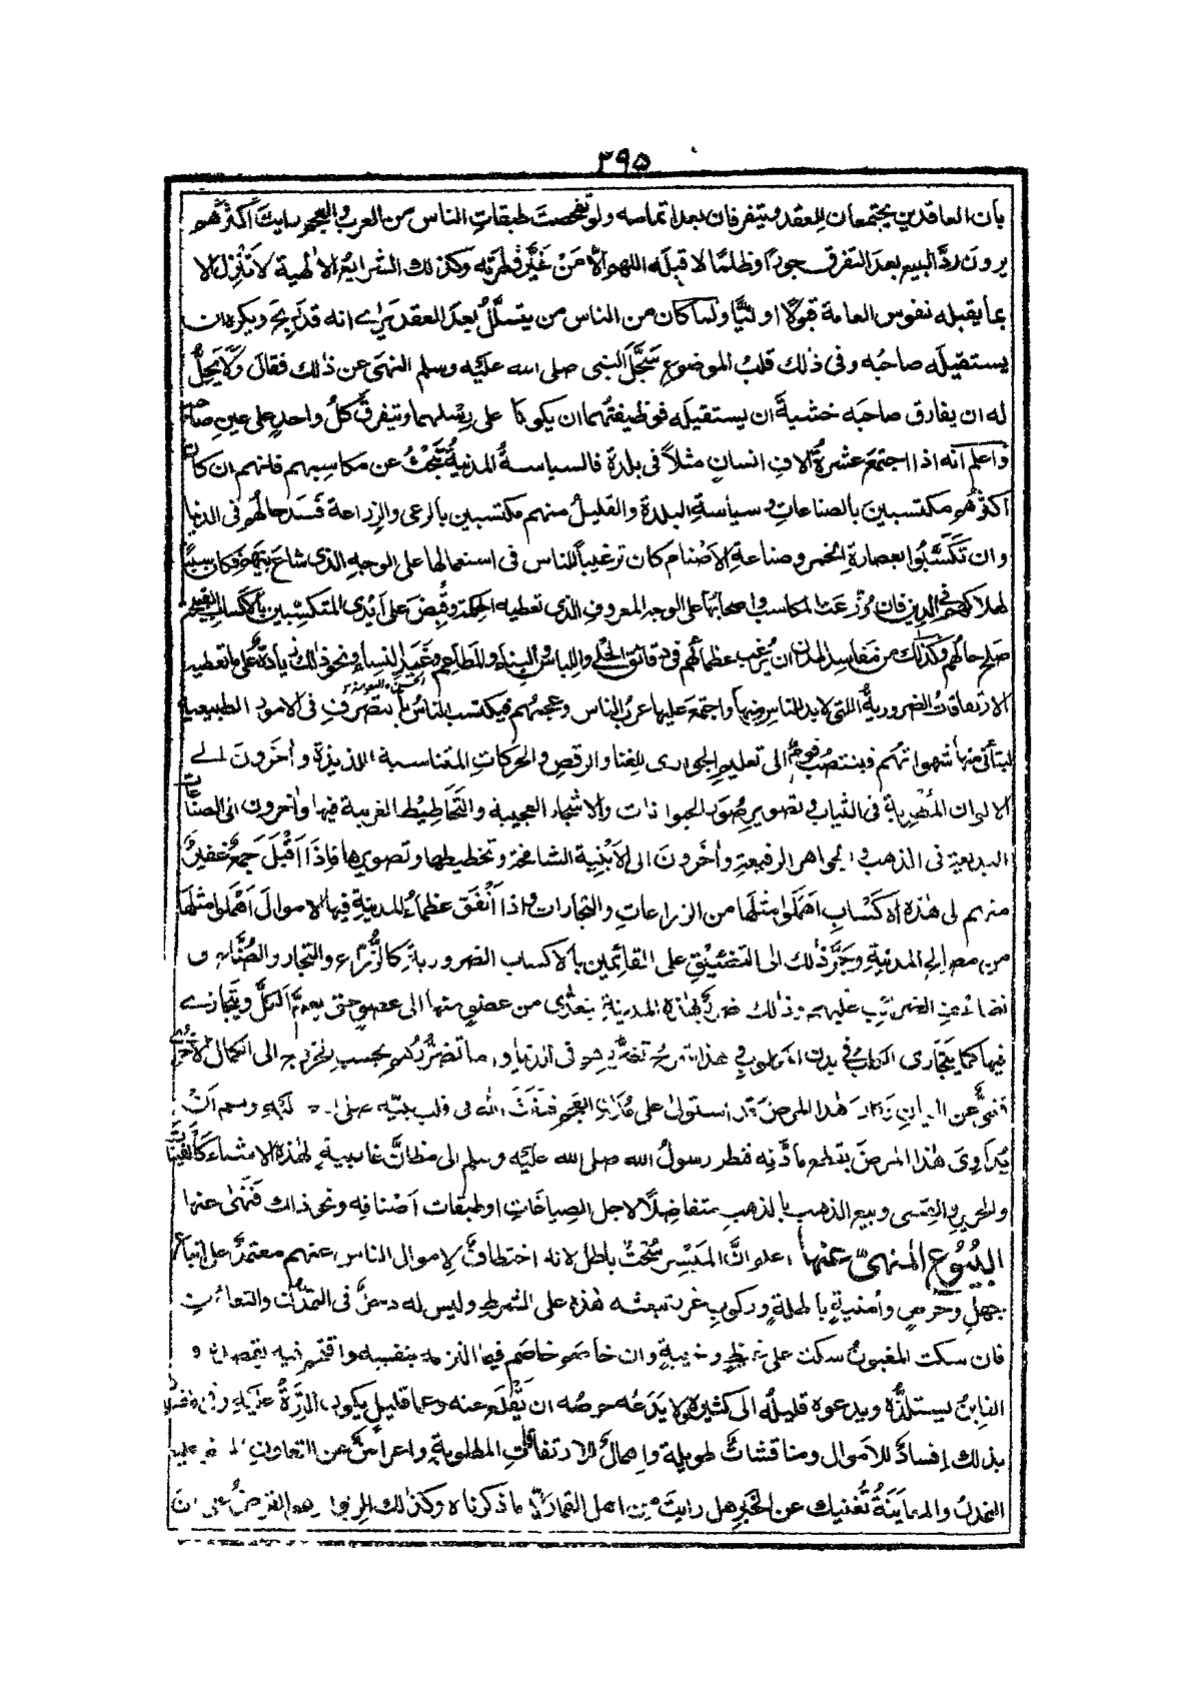 ٣٩٥
بأن العاقدين يجتمعان للعقد ويتفرقان بعد تمامه ولو تفحصت طبقات الناس من العرب والعجم رايت أكثرهم
يرون رد البيع بعد التفرق جورا وظلما لا قبله اللهم الا من غير فطرته وكذلك الشرايع الالهية لا تنزل الا
بما يقبله نفوس العامة قبولا اوليا ولما كان من الناس من يتسلل بعد العقد يرى انه قد ربح ويكره ان
يستقيله صاحبه وفى ذلك قلب الموضوع سجل النبى صلى الله عليه وسلم النهى عن ذلك فقال ولا يحل
له ان يفارق صاحبه خشية ان يستقيله فوظيفتهما ان يكونا على رسلهما ويتفرق كل واحد على عين صاحبه
واعلم انه اذا اجتمع عشرة الاف انسان مثلا فى بلدة فالسياسة المدنية تبحث عن مكاسبهم فانهم ان كان
اكثرهم مكتسبين بالصناعات وسياسة البلدة والقليل منهم مكتسبين بالرعى والزراعة فسد حالهم فى الدنيا
وان تكسبوا بعصارة الخمر وصناعة الاصنام كان ترغيبا للناس فى استعمالها على الوجه الذى شاع بينهم فكان سببا
لهلاكهم فى الدين فان وزعت المكاسب واصحابها على الوجه المعروف الذى تعطيه الحكمة وقبض على أيدى المتكسبين بالاكساب القبيحة
صلح حالهم وكذلك من مفاسد المدن ان يرغب عظمائهم فى دقائق الحلى واللباس والبناء والمطاعم وغيد النساء ونحو ذلك زيادة على ما تعطيه
الارتفاقات الضرورية التى لا بد للناس منها واجتمع عليها عرب الناس وعجمهم فيكتسب الناس بالتصرف فى الامور الطبيعية
لتتأتى منها شهواتهم فينتصب قوم الى تعليم الجوارى للغنا والرقص والحركات المتناسبة اللذيذة وأخرون الى
الالوان المطربة فى الثياب وتصوير صور الحيوانات والاشجار العجيبة والتخاطيط الغريبة فيها وأخرون الى الصناعات
البديعة فى الذهب والجواهر الرفيعة وأخرون الى الابنية الشامخة وتخطيطها وتصويرها فاذا اقبل جم غفير
منهم الى هذه الاكساب اهملوا مثلها من الزراعات والتجارات واذا أنفق عظماء المدينة فيها الاموال اهملوا مثلها
من مصالح المدينة وجر ذلك الى التضييق على القائمين بالاكساب الضرورية كالزراع والتجار والصناع و
تضاعف الضرائب عليهم وذلك ضرر بهذه المدينة يتعدى من عضو منها الى عضو حتى يعم الكل ويتجارى
فيها كما يتجارى الكلب فى بدن المكلوب وهذا شرح تضررهم فى الدنيا واما تضررهم بحسب الخروج الى الكمال الاخروى
فغنى عن البيان وكان هذا المرض قد استولى على مدن العجم فنفث الله فى قلب نبيه صلى الله عليه وسلم ان
يداوى هذا المرض بقطع مادته فنظر رسول الله صلى الله عليه وسلم الى مظان غالبية لهذه الاشياء كالقينات
والحرير والقسى وبيع الذهب بالذهب متفاضلا لاجل الصياغات او طبقات أصنافه ونحو ذلك فنهى عنها
البيوع المنهى عنها اعلم ان الميسر سحت باطل لانه اختطاف لاموال الناس عنهم معتمد على اتباع
جهل وحرص وأمنية باطلة وركوب غرر تبعثه هذه على الشرط وليس له دخل فى التمدن والتعاون
فان سكت المغبون سكت على غيظ وخيبة وان خاصم خاصم فيما التزمه بنفسه واقتحم فيه بقصده و
الغابن يستلذه ويدعوه قليله الى كثيره ولا يدعه حرصه ان يقلع عنه وعما قليل يكون الترة عليه وفى الاعتياد
بذلك إفساد للاموال ومناقشات طويلة واهمال للارتفاقات المطلوبة واعراض عن التعاون المبنى عليه
التمدن والمعاينة تغنيك عن الخبر هل رايت من اهل القمار الا ما ذكرناه وكذلك الربوا وهو القرض على ان